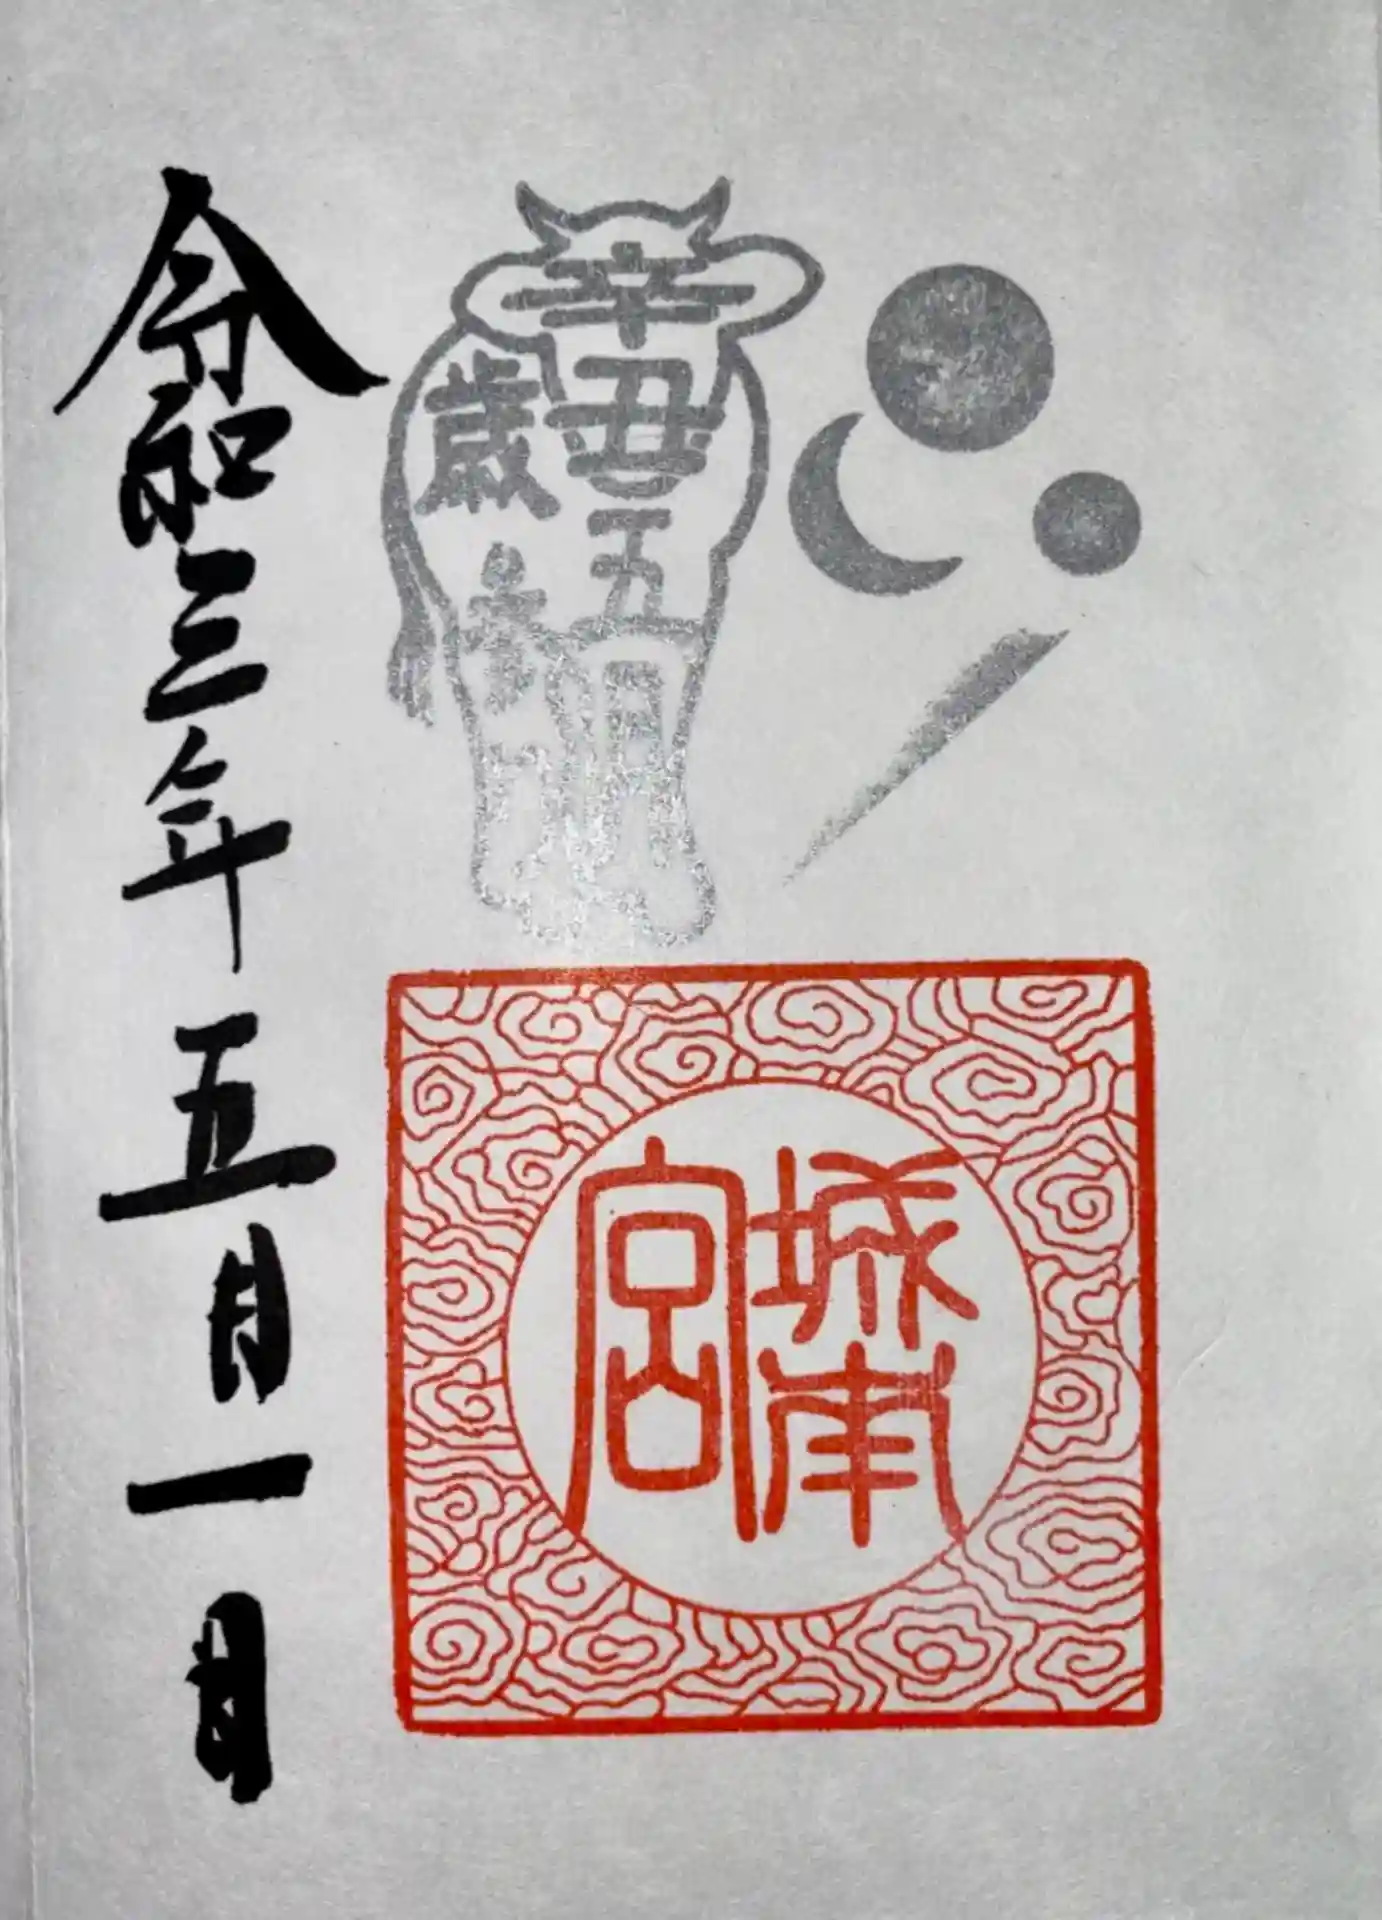 辛丑五
歳
城南
宮
令和三年五月一日